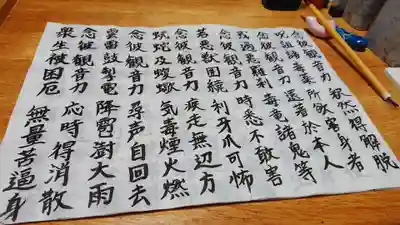 念彼観音力 釈然得解脱
呪詛諸毒薬 所欲害身者
念彼観音力 還著於本人
或遇悪羅刹 毒竜諸鬼等
念彼観音力 時悉不敢害
若悪獣囲繞 利牙爪可怖
念彼観音力 疾走無辺方
蚖蛇及蝮蠍 気毒煙火燃
念彼観音力 尋声自回去
雲雷鼓掣電 降雹澍大雨
念彼観音力 応時得消散
衆生被困厄 無量苦逼身